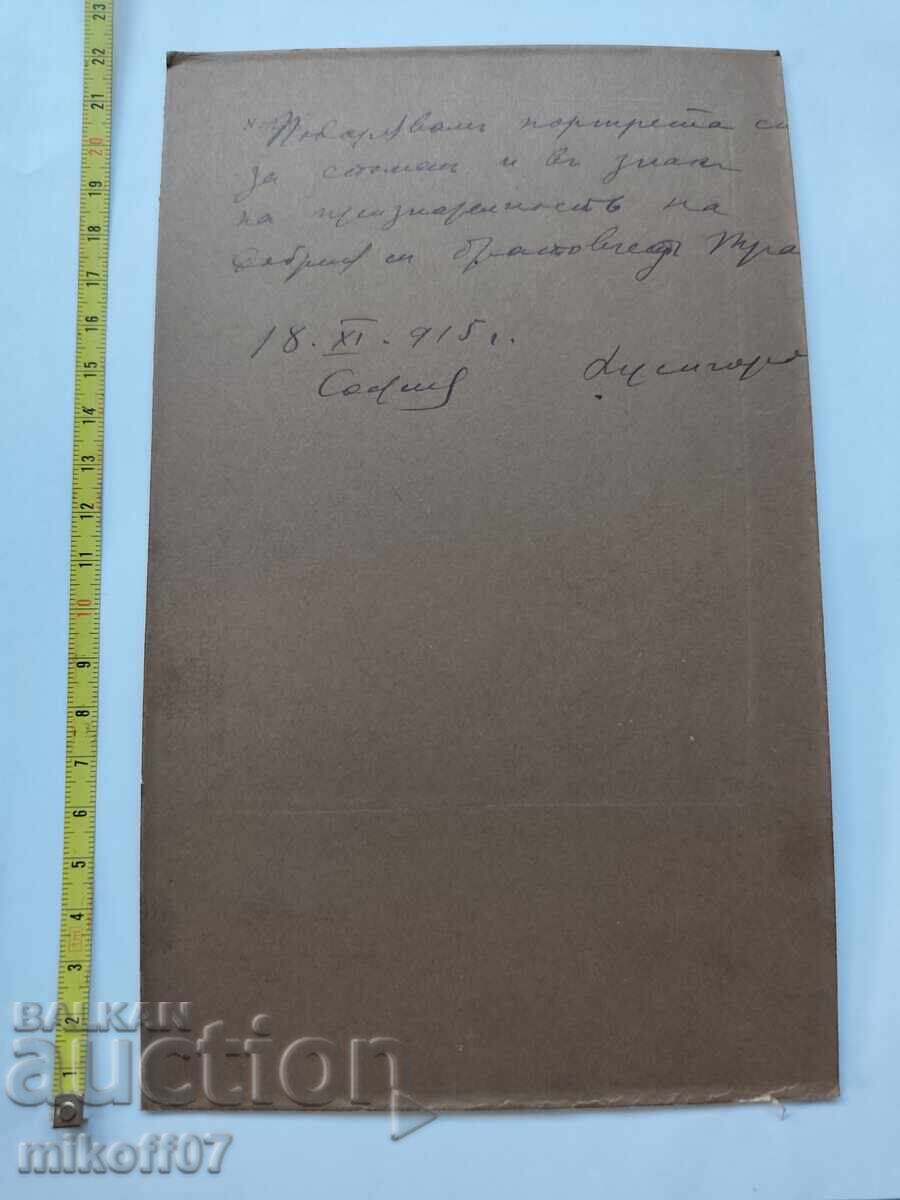 Подарявамъ портрета си
за споменъ и въ знакъ
на признателность на
добрия си братовчедъ
18. XI. 915 г.
София
BALKAN
auction
mikoff07
1 2 3 4 5 6 7 8 9 10 11 12 13 14 15 16 17 18 19 20 21 22 23